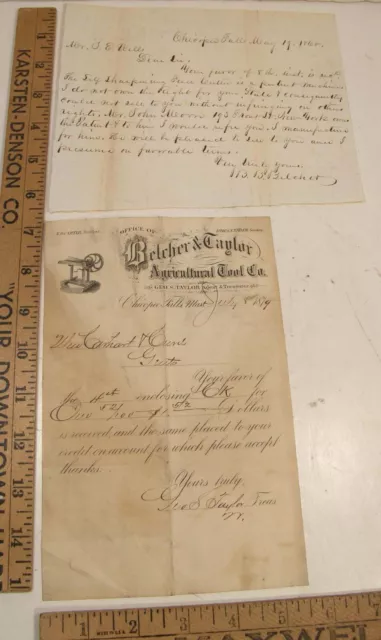 Chicopee Falls May 19, 1860.
Mr. T. E. Wells
Dear Sir,
Your favor of the inst. is rec'd
The Self Sharpening is a patent
I do not own the Right for your State & consequently
could not sell to you without infringing on others
Rights. Mr. John Moore 193 New York owns
the Patent & to him I would refer you. I manufacture
for him. He will be pleased to sell to you and I
presume on favorable terms.
Very truly yours
B. B. Belcher
OFFICE OF
Belcher & Taylor
Agricultural Tool Co.
GEO. S. TAYLOR, Agent & Treasurer
Chicopee Falls, Mass. July 8 1879
Gents
Your favor of
the 4th enclosing Ck for
Dollars
is received and the same placed to your
credit on account for which please accept
thanks.
Yours truly,
Geo S. Taylor, Treas
KARSTEN-DENSON CO.
DOWNTOWN HAR
1
2
3
4
5
6
7
8
9
10
11
12
13
14